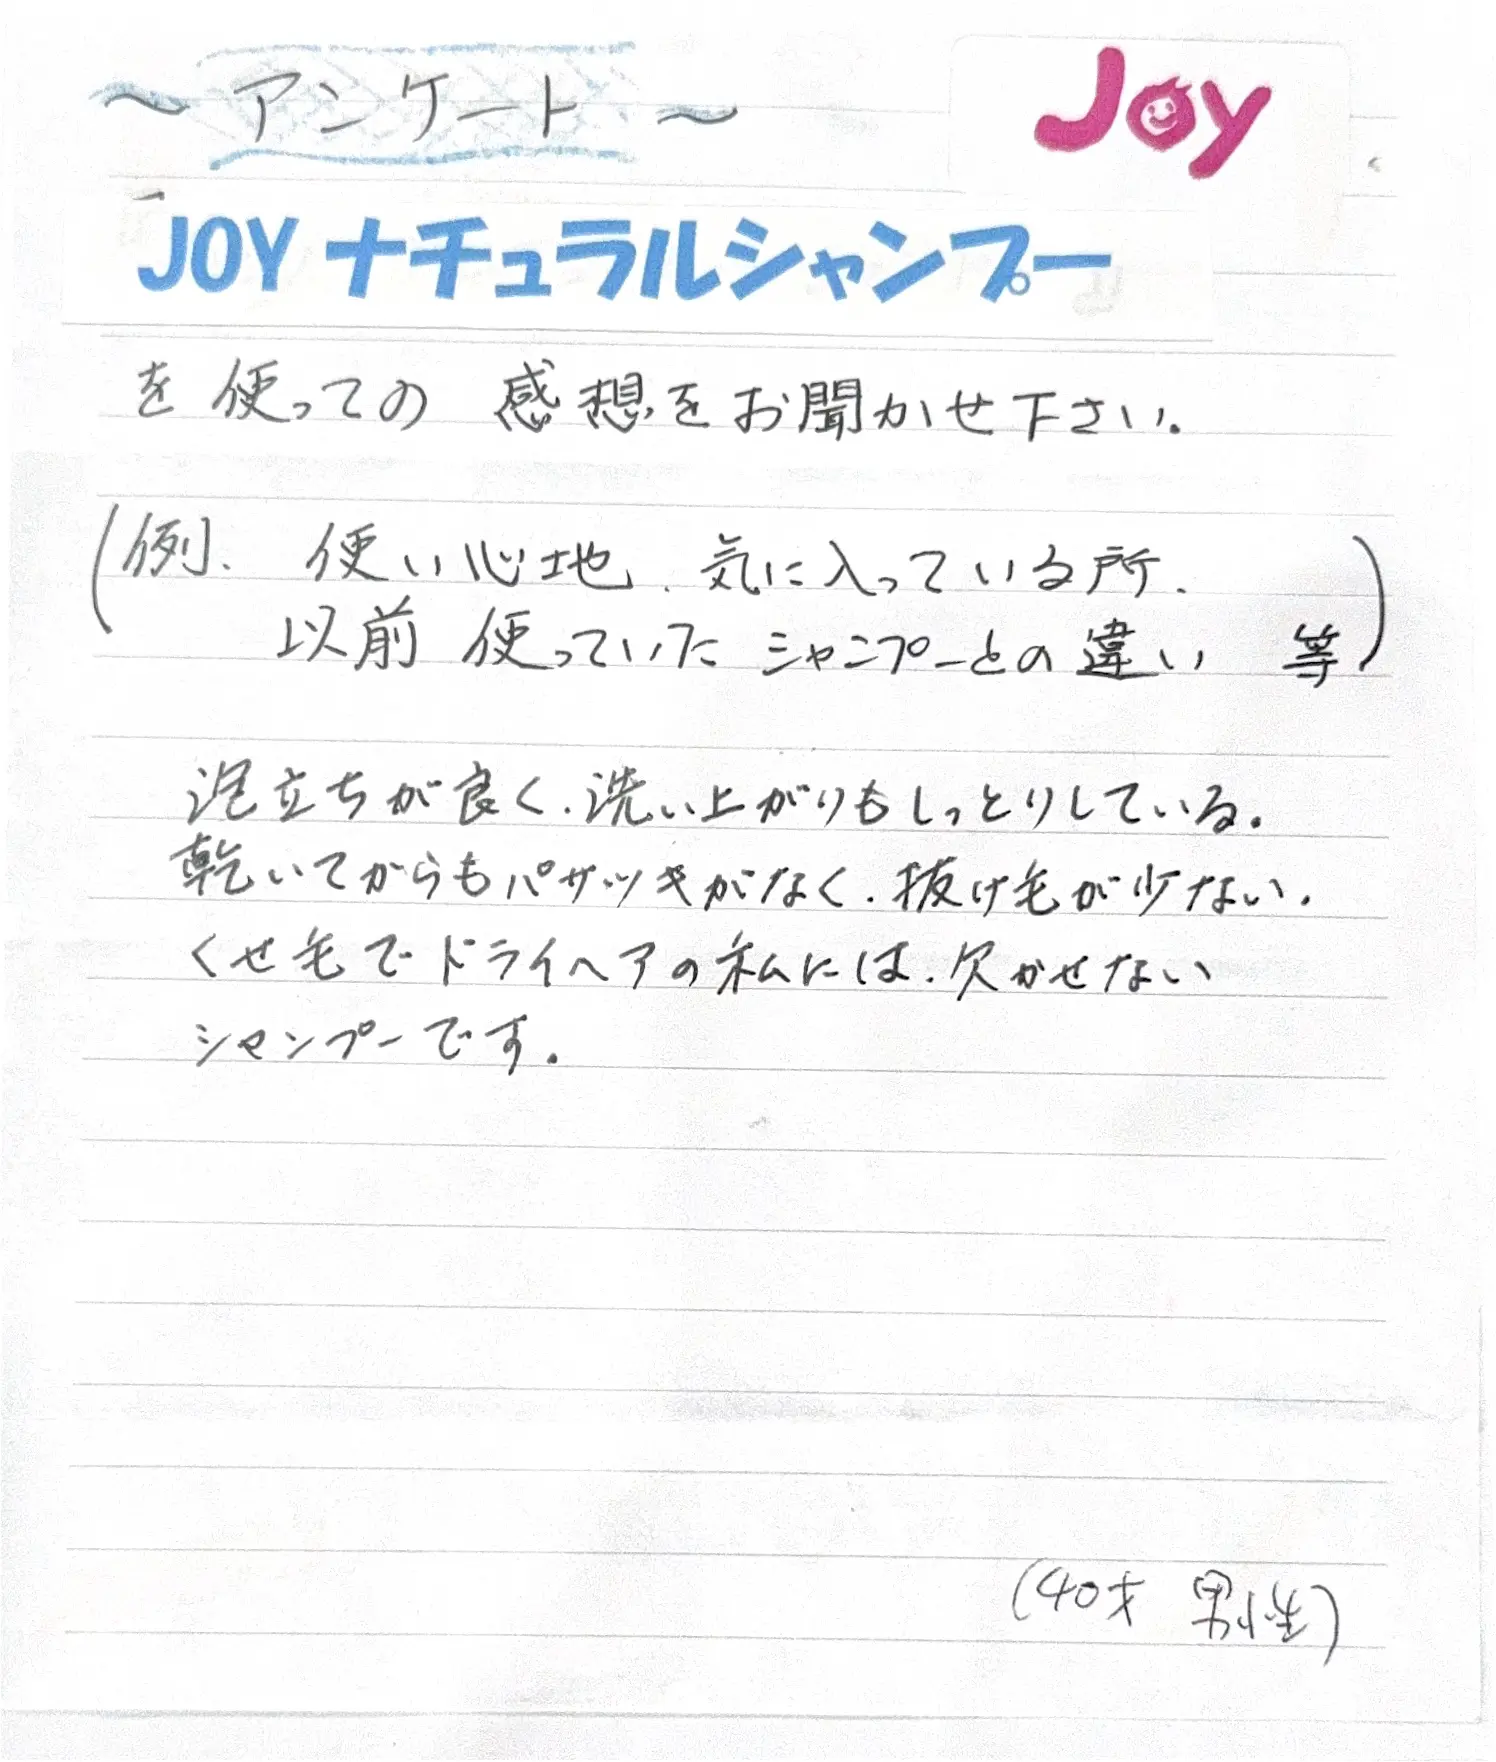 ～アンケート～
Joy
JOY ナチュラルシャンプー
を使っての 感想をお聞かせ下さい。
(例. 使い心地. 気に入っている所.
以前 使っていた シャンプーとの違い 等)
泡立ちが良く、洗い上がりもしっとりしている。
乾いてからもパサツキがなく、抜け毛が少ない。
くせ毛でドライヘアの私には、欠かせない
シャンプーです。
(40才 男性)